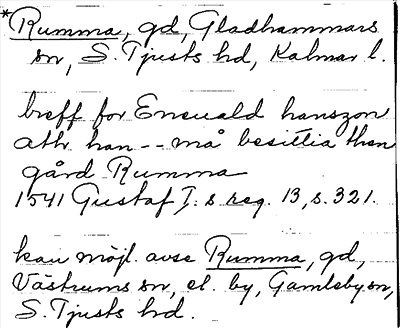 *Rumma, gd, Gladhammars
sn, S. Tjusts hd, Kalmar l.
breff for Eneuald hanszon
ath han -- må besittia then
gård Rumma
1541 Gustaf I:s reg. 13, s. 321.
kan möjl. avse Rumma, gd,
Västrums sn, el. by, Gamleby sn,
S. Tjusts hd.